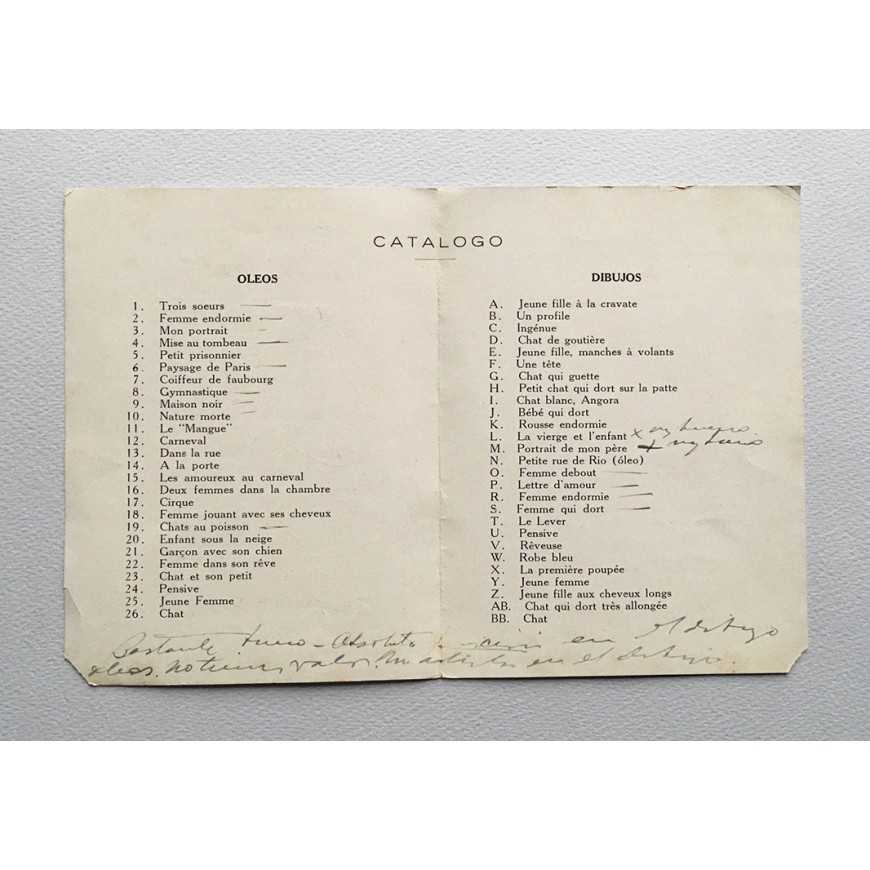 CATALOGO
OLEOS
1. Trois soeurs
2. Femme endormie
3. Mon portrait
4. Mise au tombeau
5. Petit prisonnier
6. Paysage de Paris
7. Coiffeur de faubourg
8. Gymnastique
9. Maison noir
10. Nature morte
11. Le "Mangue"
12. Carneval
13. Dans la rue
14. A la porte
15. Les amoureux au carneval
16. Deux femmes dans la chambre
17. Cirque
18. Femme jouant avec ses cheveux
19. Chats au poisson
20. Enfant sous la neige
21. Garçon avec son chien
22. Femme dans son rêve
23. Chat et son petit
24. Pensive
25. Jeune Femme
26. Chat
DIBUJOS
A. Jeune fille à la cravate
B. Un profile
C. Ingénue
D. Chat de goutière
E. Jeune fille, manches à volants
F. Une tête
G. Chat qui guette
H. Petit chat qui dort sur la patte
I. Chat blanc, Angora
J. Bébé qui dort
K. Rousse endormie
L. La vierge et l'enfant x muy bueno
M. Portrait de mon père x
N. Petite rue de Rio (óleo)
O. Femme debout
P. Lettre d'amour
R. Femme endormie
S. Femme qui dort
T. Le Lever
U. Pensive
V. Rêveuse
W. Robe bleu
X. La première poupée
Y. Jeune femme
Z. Jeune fille aux cheveux longs
AB. Chat qui dort très allongée
BB. Chat
Bastante en el dibujo
oleos no tienen valor. en el dibujo.